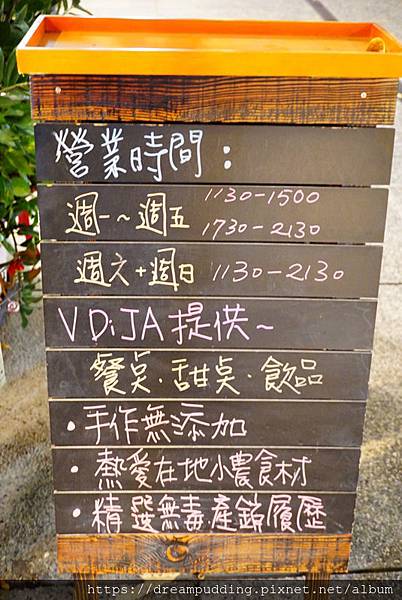 營業時間：
週一～週五 1130-1500
1730-2130
週六+週日 1130-2130
VDiJA提供～
餐桌.甜桌.飲品
・手作無添加
・熱愛在地小農食材
・精選無毒.產銷履歷
https://dreampudding.pixnet.net/album